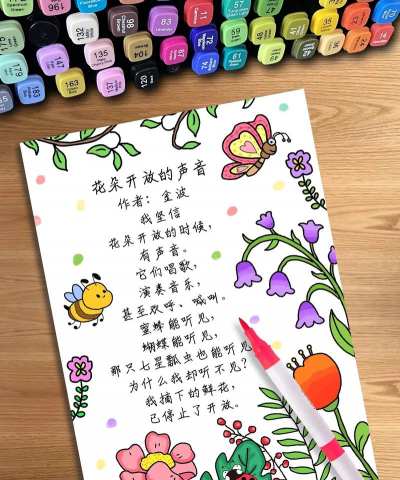 175
Spectrum Green
62
98
Chestnut Brown
83
Lavender
11
121
58
57
64
14
163
135
104
73
120
Black
花朵开放的声音
作者：金波
我坚信
花朵开放的时候，
有声音。
它们唱歌，
演奏音乐，
甚至欢呼，喊叫。
蜜蜂能听见，
蝴蝶能听见，
那只七星瓢虫也能听见，
为什么我却听不见？
我摘下的鲜花，
已停止了开放。